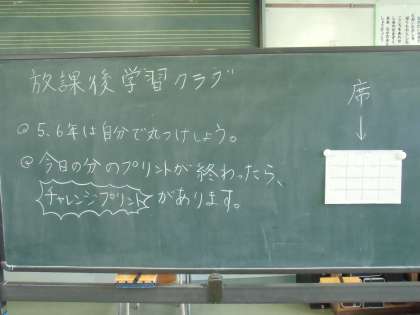 放課後学習クラブ
@ 5.6年は自分で丸つけしよう。
@ 今日の分のプリントが終わったら、
チャレンジプリントがあります。
席
↓